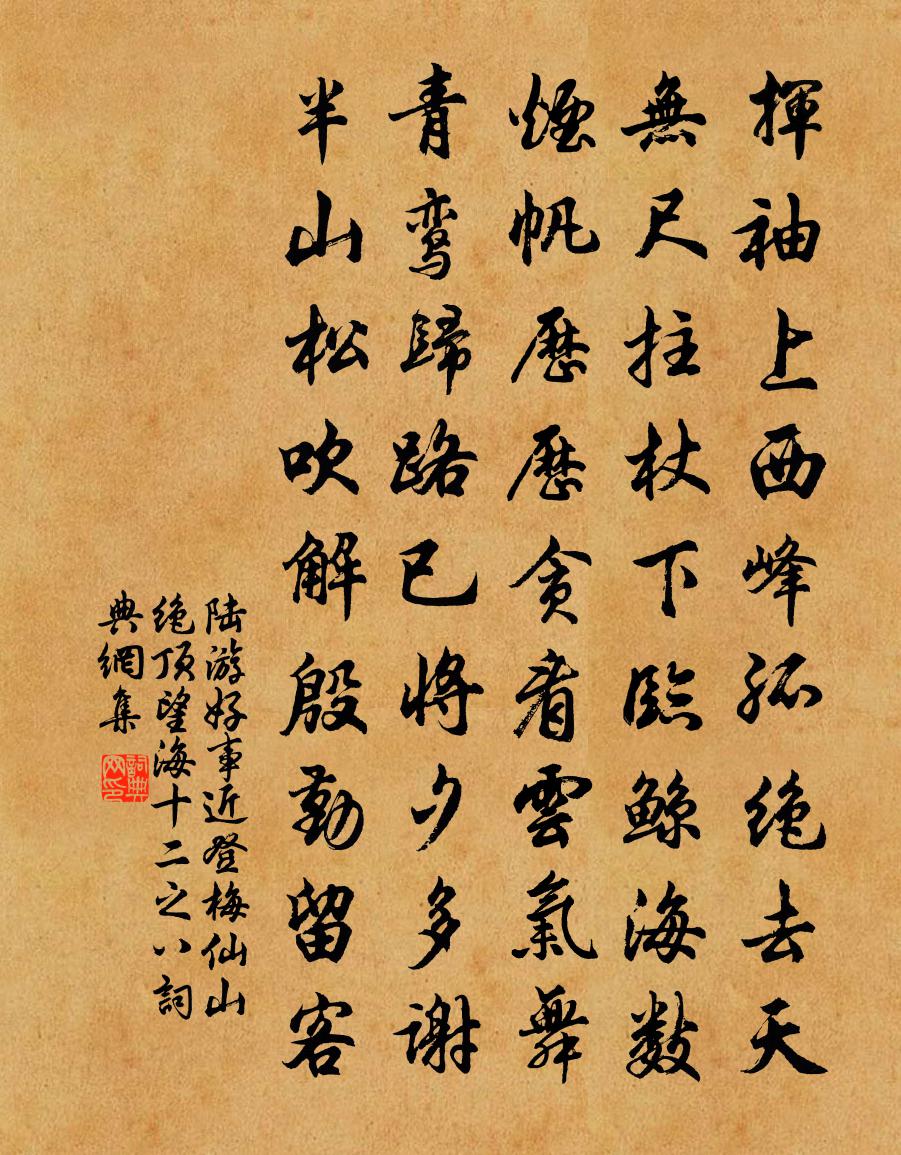 揮袖上西峰孤绝去天
無尺拄杖下臨鲸海数
煙帆歷歷贪看雲氣舞
青鸾歸路已將夕多谢
半山松吹解殷勤留客
陆游好事近登梅仙山
绝顶望海十二之八詞
典網集
詞典网印